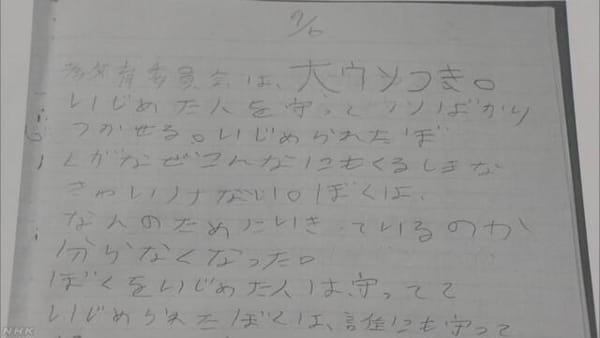 9/6
教育委員会は、大ウソつき。
いじめた人を守ってウソばかり
つかせる。いじめられたぼ
くがなぜこんなにもくるしまな
きゃいけない。ぼくは、
な人のためにいきているのか
分からなくなった。
ぼくをいじめた人は守ってて
いじめられたぼくは、誰にも守って
NHK